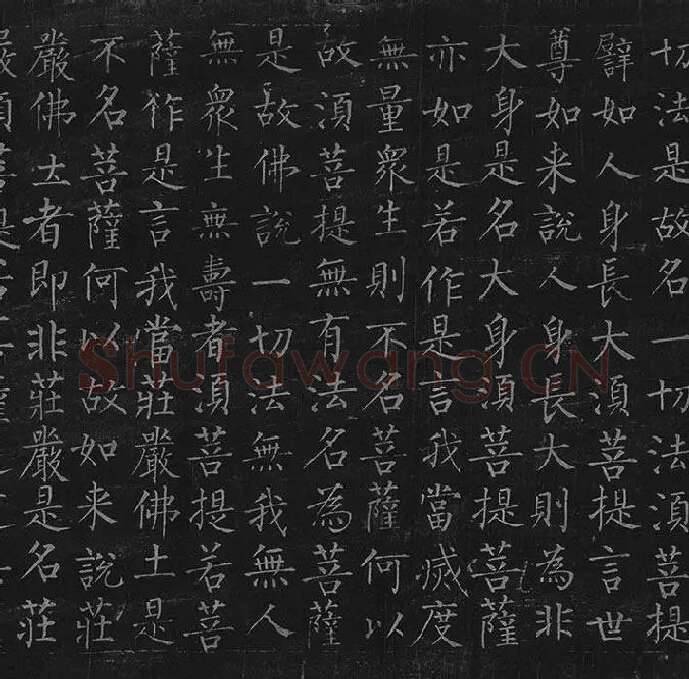 切法是故名一切法須菩提
譬如人身長大須菩提言世
尊如来說人身長大則為非
大身是名大身須菩提菩薩
亦如是若作是言我當滅度
無量眾生則不名菩薩何以
故須菩提無有法名為菩薩
是故佛說一切法無我無人
無眾生無壽者須菩提若菩
薩作是言我當莊嚴佛土是
不名菩薩何以故如来說莊
嚴佛土者即非莊嚴是名莊
Shufawang.CN